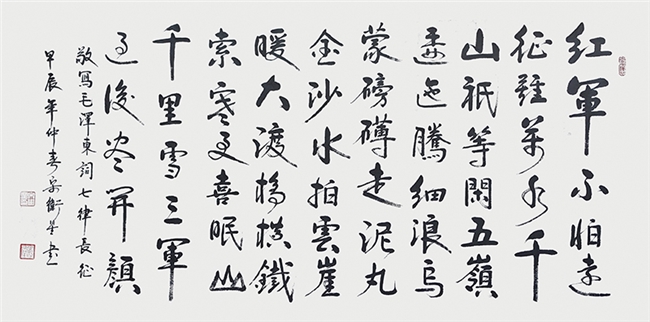 红軍不怕遠
征難萬水千
山祇等閑五嶺
逶迤騰細浪烏
蒙磅礴走泥丸
金沙水拍雲崖
暖大渡橋横鐵
索寒更喜眠山
千里雪三軍
過後盡開顔
敬寫毛澤東詞七律長征
甲辰年仲春